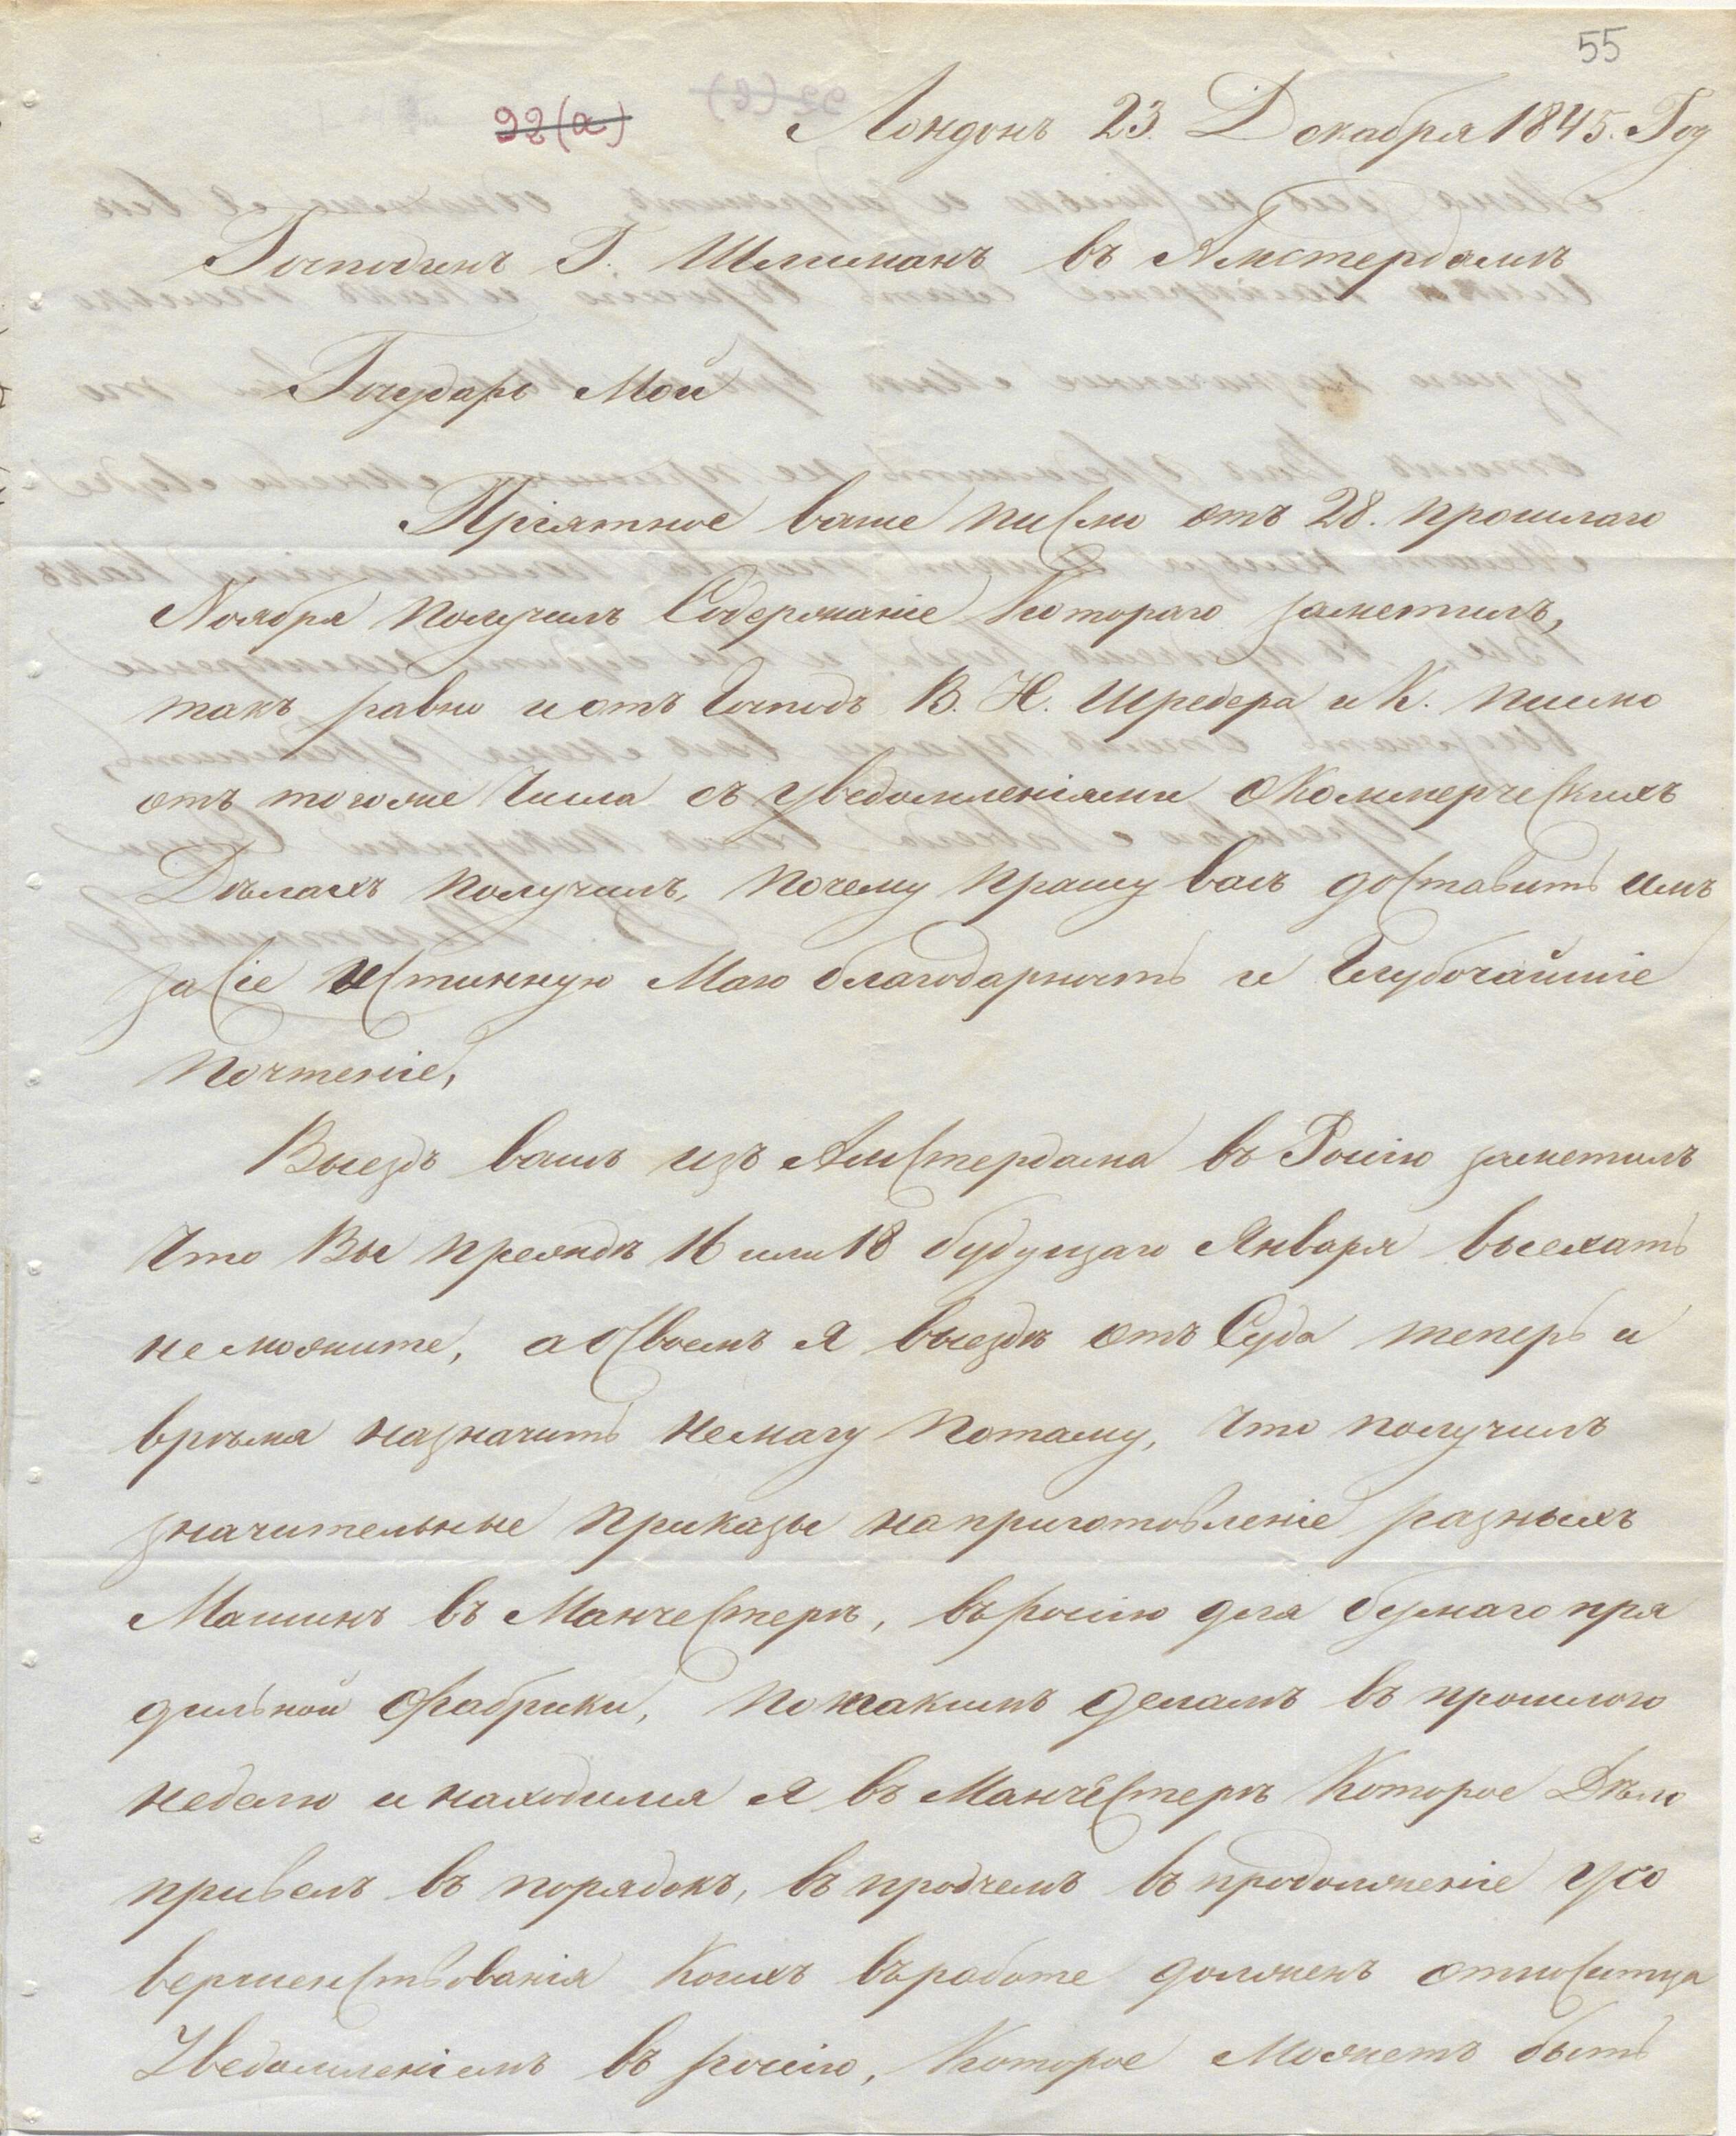 55
22(a)
Лондонъ 23. Декабря 1845. Год
Господинъ Г. Шлиманъ въ Амстердамъ
Государь Мой
Пріятное ваше писмо отъ 28. прошлаго
Ноября получилъ Содержаніе Котораго заметилъ,
такъ равно и отъ Господъ Б. Н. Шредера и К. писмо
отъ тогоже Числа съ уведомленіями о Коммерческихъ
Дѣлахъ получилъ, почему прашу васъ доставить имъ
за Сіе истинную Маю благодарность и Глубочайшіе
почтеніе,
Выездъ вашъ изъ Амстердама въ Росію заметилъ
Что Вы прежде 16 или 18 будущаго Января выехать
неможите, а о Своемъ я выездѣ отъ Суда теперь и
врѣмя назначить немагу потаму, Что получилъ
значительные приказы на приготовленіе разныхъ
Машинъ въ Манчестерѣ, въ росію для бумаго пря
дильной фабрики, по такимъ деламъ въ прошлою
неделю и находился я въ Манчестерѣ Которое Дѣло
привелъ въ порядокъ, въ продчемъ въ продолженіе усо
вершенствованія Коихъ въ работе долженъ относитца
Уведомленіемъ въ росію, Которое Можетъ быть